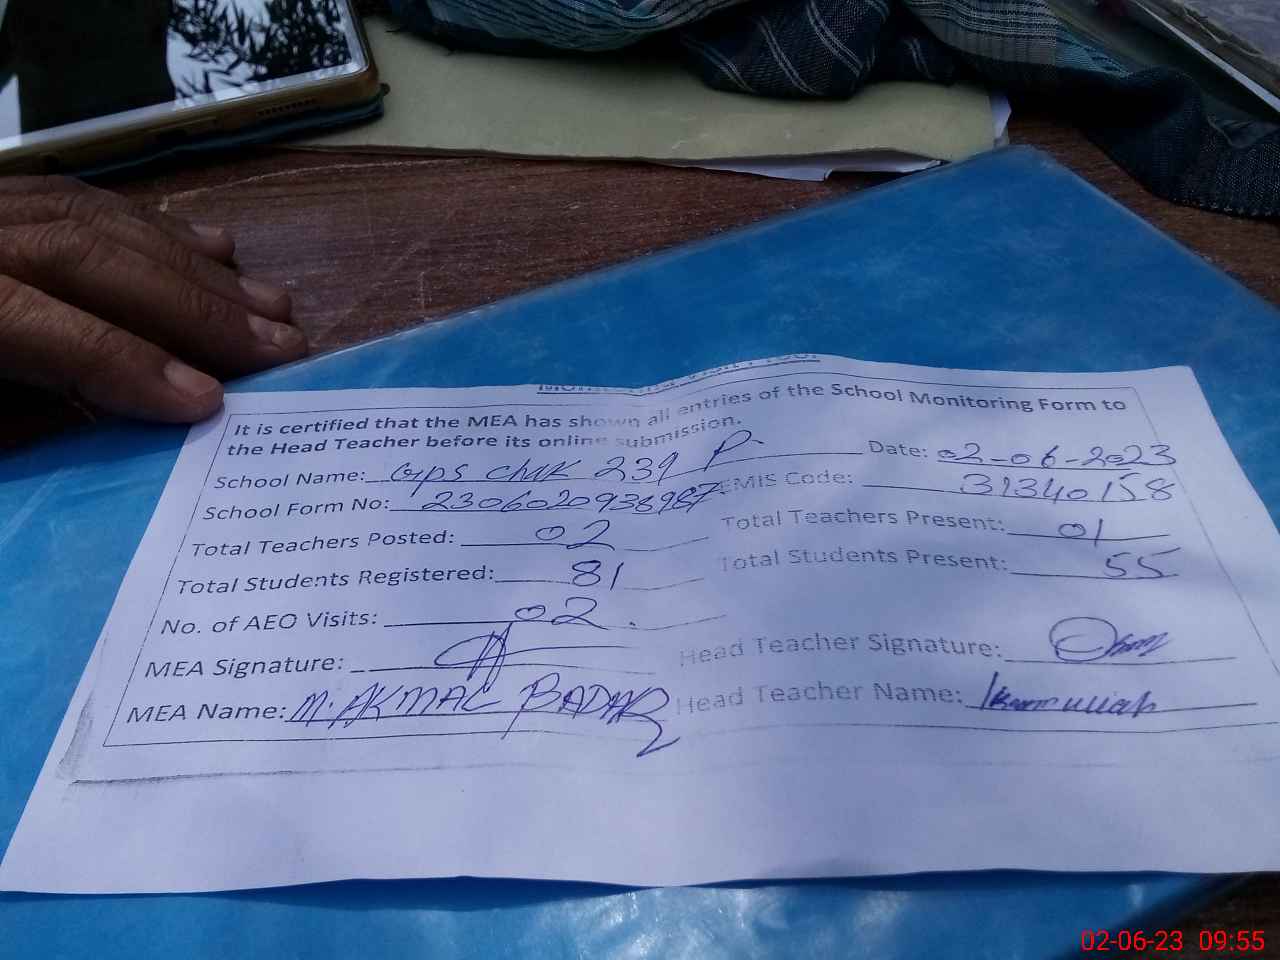 Monitoring Visit Proof
It is certified that the MEA has shown all entries of the School Monitoring Form to
the Head Teacher before its online submission.
School Name: GPS Chak 239 P. Date: 02-06-2023
School Form No: 2306020938987 EMIS Code: 31340158
Total Teachers Posted: 02 Total Teachers Present: 01
Total Students Registered: 81 Total Students Present: 55
No. of AEO Visits: 02.
MEA Signature: Head Teacher Signature:
MEA Name: M. AKMAL BADAR Head Teacher Name: Ikramullah
02-06-23 09:55